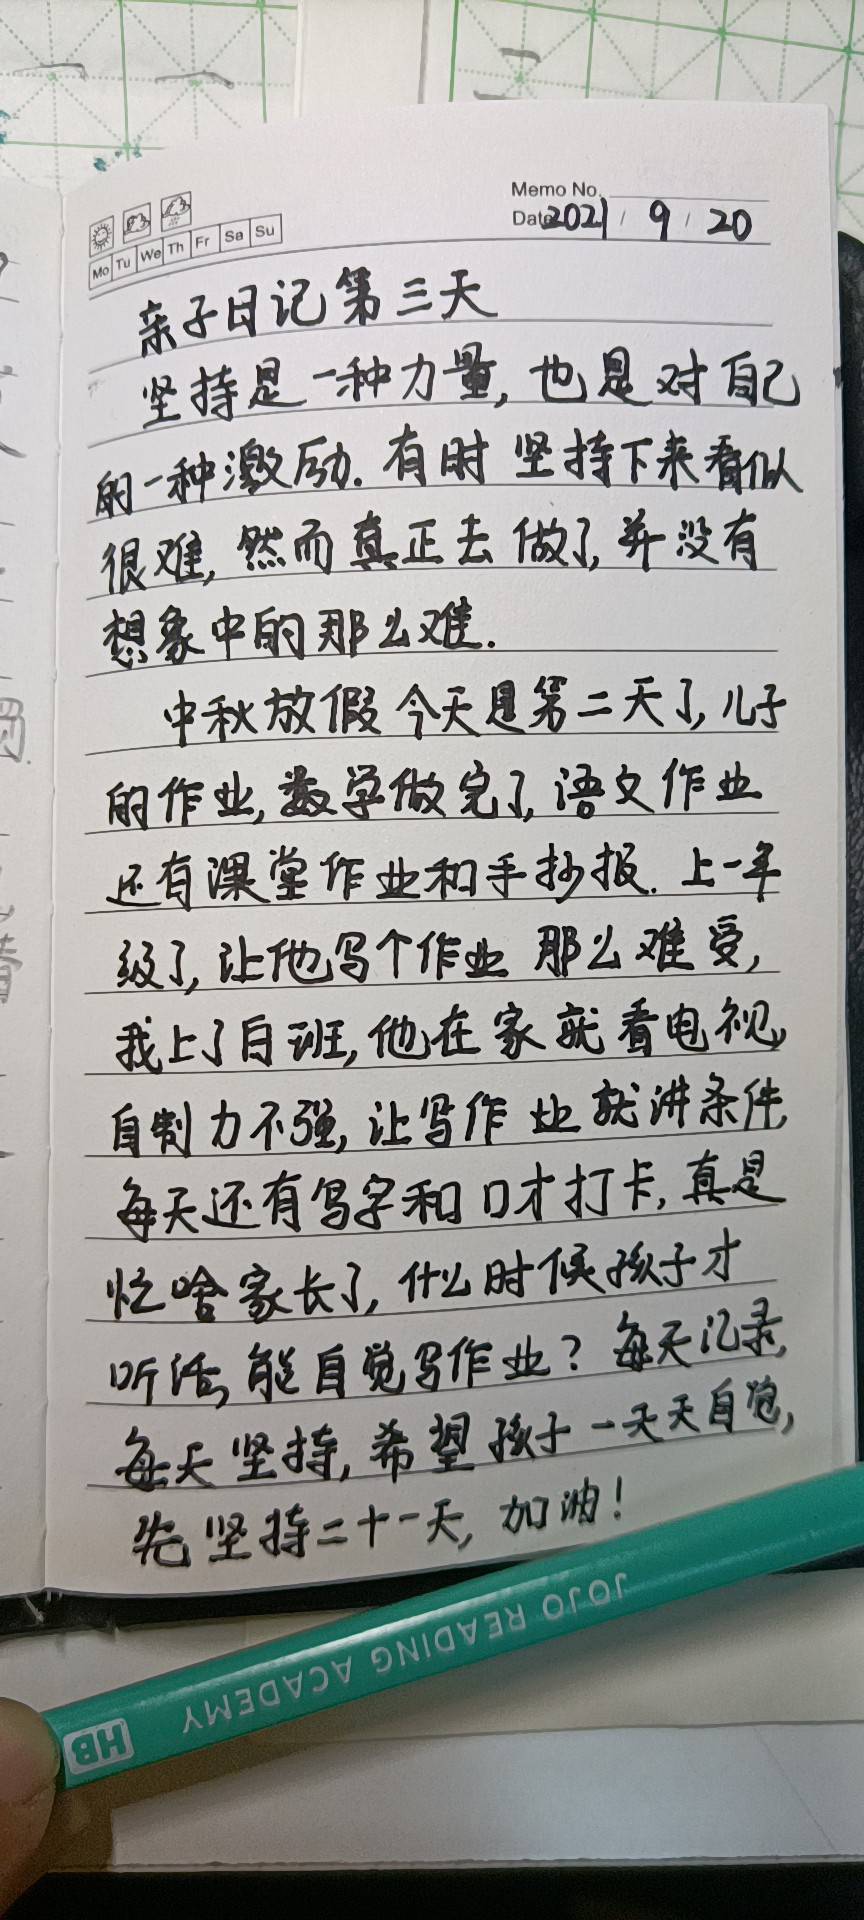 Memo No.
Date 2021 / 9 / 20
Mo Tu We Th Fr Sa Su
亲子日记第三天
坚持是一种力量,也是对自己
的一种激励.有时坚持下来看似
很难,然而真正去做了,并没有
想象中的那么难.
中秋放假今天是第二天了,儿子
的作业,数学做完了,语文作业
还有课堂作业和手抄报.上一年
级了,让他写个作业那么难受,
我上了白班,他在家就看电视,
自制力不强,让写作业就讲条件,
每天还有写字和口才打卡,真是
忙啥家长了,什么时候孩子才
听话,能自觉写作业?每天记录,
每天坚持,希望孩子一天天自觉,
先坚持二十一天,加油!
JOJO READING ACADEMY
HB